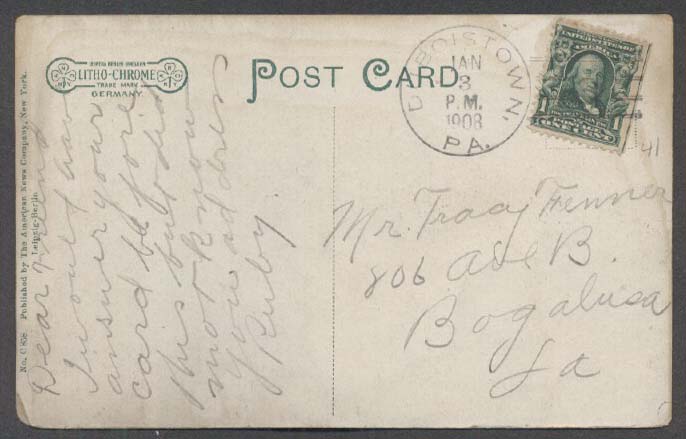 LITHO-CHROME
TRADE MARK
GERMANY.
POST CARD.
DUBOISTOWN,
JAN
3
P.M.
1908
PA.
1
ONE CENT
41
No. C 858 Published by The American News Company, New York.
Leipzig-Berlin
Dear Friend
I would have
answer your
card be fore
this but did
not know
your ad dress
Ruby.
Mr. Tracy Fenner
806 Ave B.
Bogalusa
La